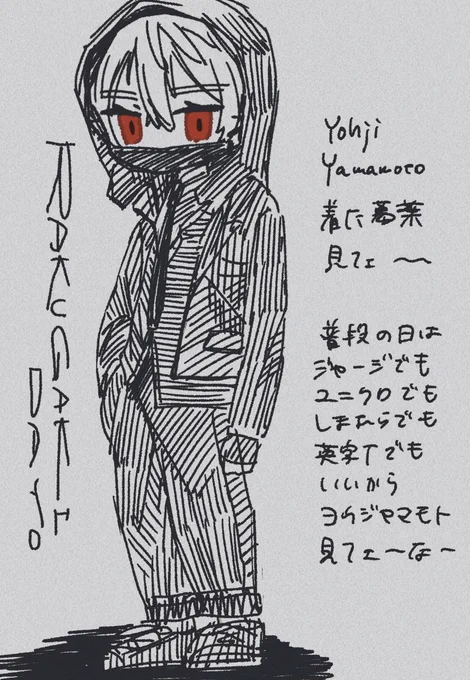 RAKUGAKI
DAYO
Yohji
Yamamoto
着た葛葉
見てェ〜
普段の日は
ジャージでも
ユニクロでも
しまむらでも
英字Tでも
いいから
ヨウジヤマモト
見てェ〜な〜